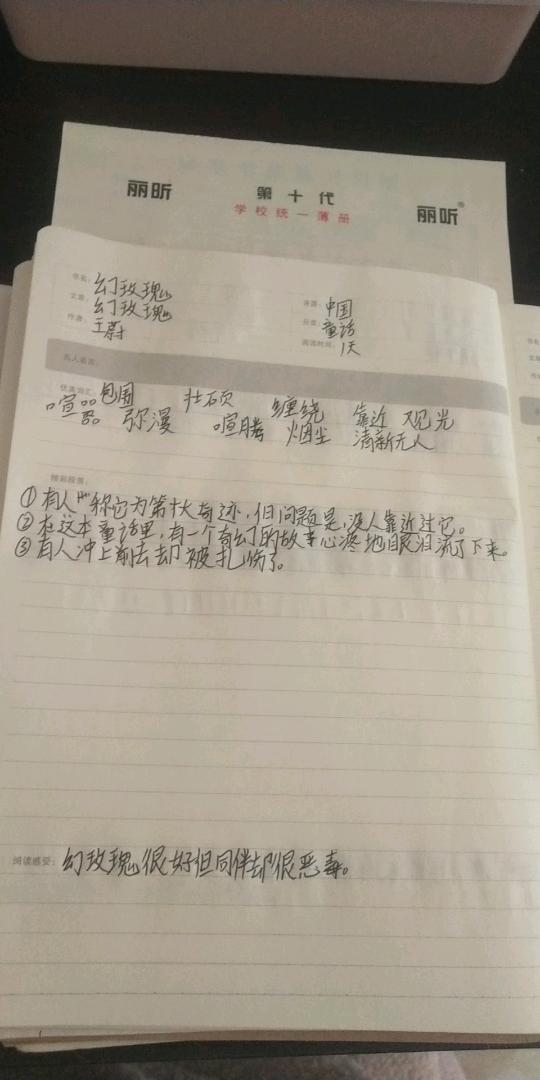 丽昕
第十代
学校统一薄册
丽昕®
书名：幻玫瑰
文章：幻玫瑰
作者：王蔚
中国
童话
阅读时间：1天
名人名言：
优美词汇：
包围 壮硕 缠绕 靠近 观光
喧嚣 弥漫 喧腾 烟尘 清新无人
精彩段落：
①有人"称它为第十大奇迹，但问题是，没人靠近过它。
②在这本童话里，有一个奇幻的故事心疼地眼泪流了下来。
③有人冲上前去却被扎伤了。
阅读感受：幻玫瑰很好但同伴却很恶毒。